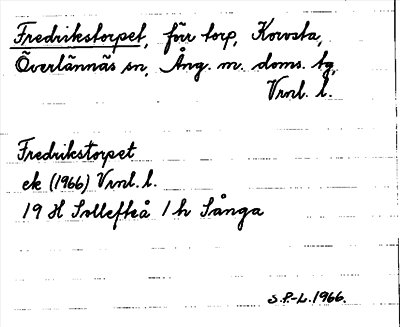 Fredrikstorpet, förr torp, Korosta,
Överlännäs sn, Ång. m. doms. tg,
Vrnl. l.
Fredrikstorpet
ek (1966) Vrnl. l.
19 H Sollefteå 1 h Sånga
S.P-L. 1966.